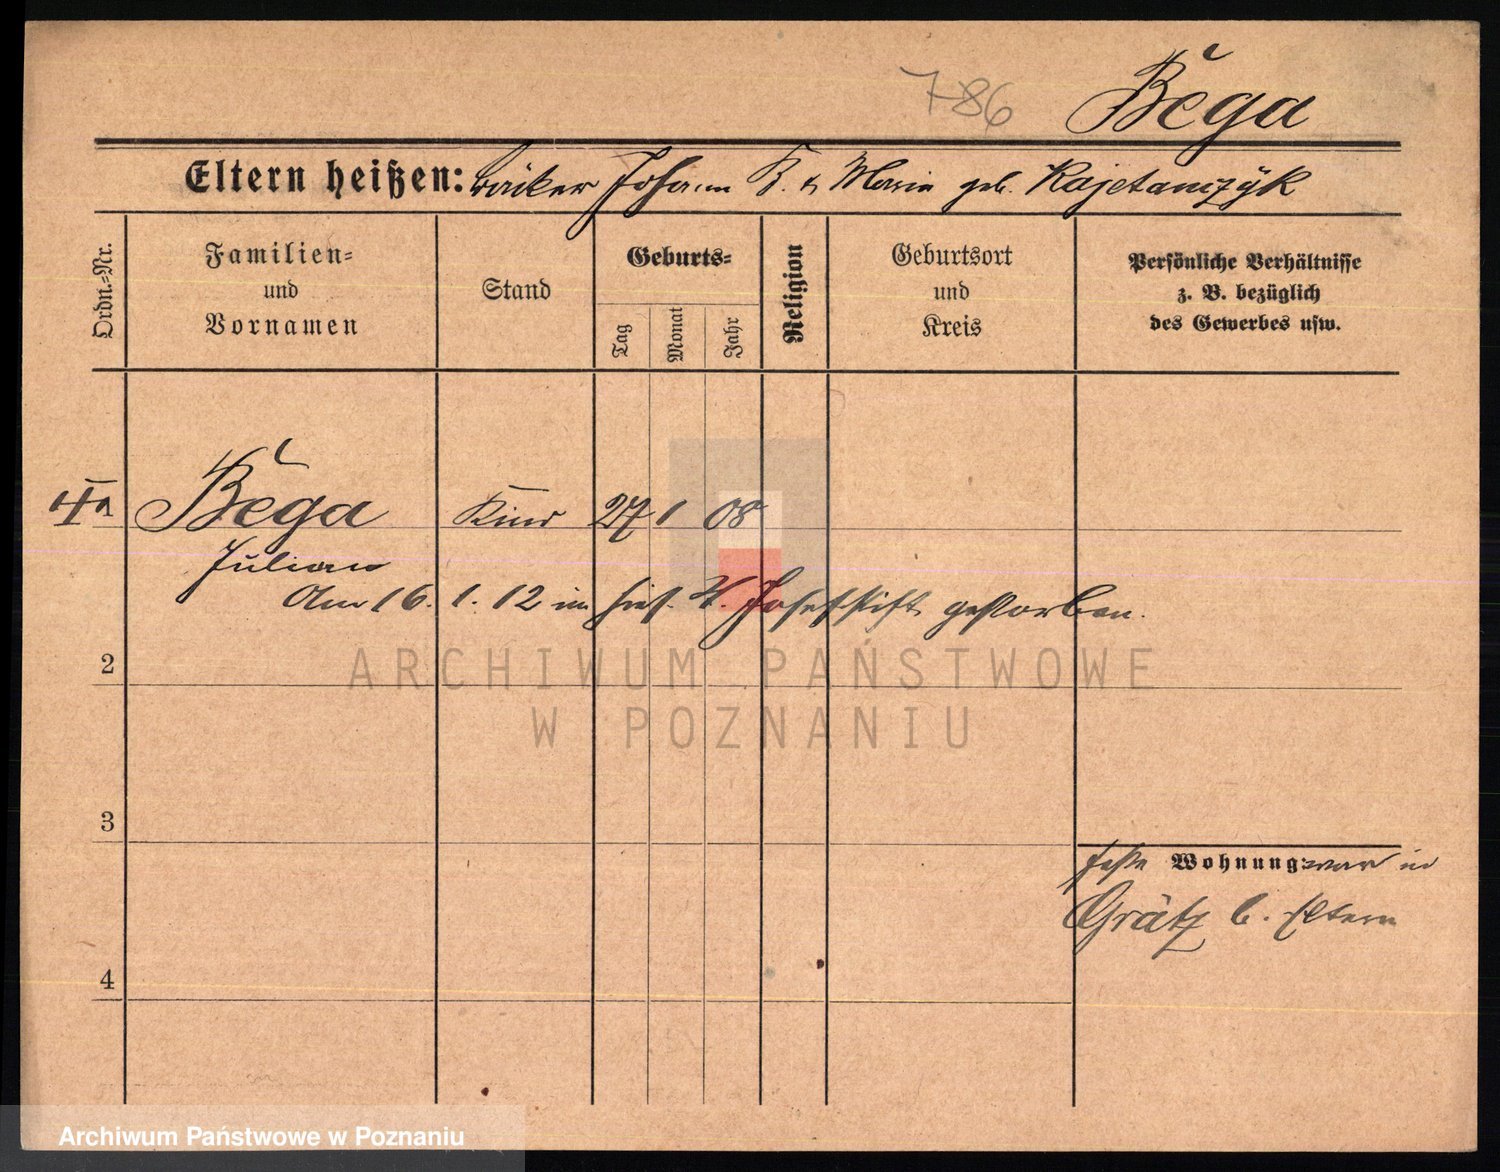 786 Bĕga
Eltern heißen: Bäcker Johann B. & Maria geb. Kajetanczÿk
Ordn.-Nr.
Familien- und Vornamen
Stand
Geburts-
Tag
Monat
Jahr
Religion
Geburtsort und Kreis
Persönliche Verhältnisse z. B. bezüglich des Gewerbes usw.
Bĕga Kind 27 1 08
Julian
Am 16. 1. 12 im hies. St. Josefstift gestorben.
ARCHIWUM PAŃSTWOWE
W POZNANIU
2
3
feste Wohnung: war in
Grätz b. Eltern
4
Archiwum Państwowe w Poznaniu